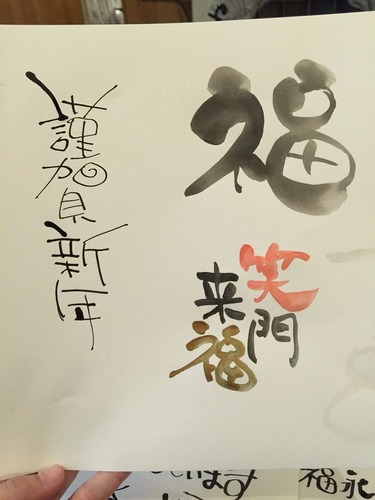 福
笑門
来福
謹賀新年
福永